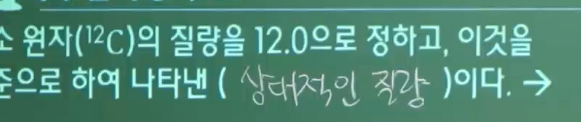 소 원자(¹²C)의 질량을 12.0으로 정하고, 이것을
준으로 하여 나타낸 ( 상대적인 질량 )이다. →